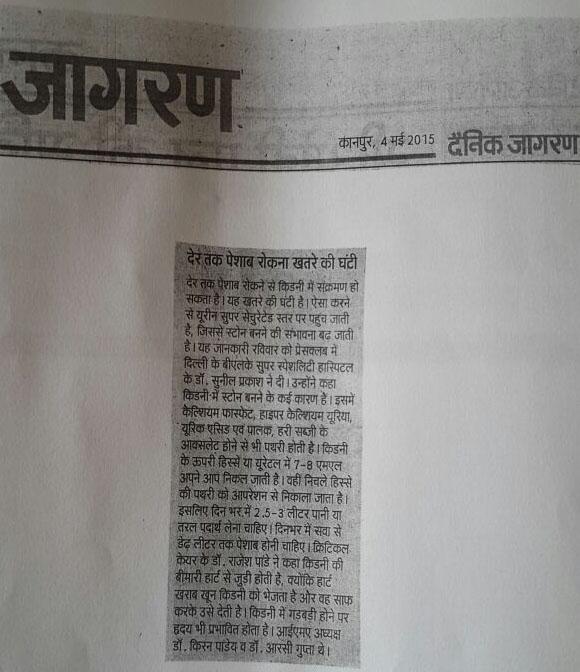 जागरण
कानपुर, 4 मई 2015 दैनिक जागरण
देर तक पेशाब रोकना खतरे की घंटी
देर तक पेशाब रोकने से किडनी में संक्रमण हो
सकता है। यह खतरे की घंटी है। ऐसा करने
से यूरीन सुपर सेचुरेटेड स्तर पर पहुंच जाती
है, जिससे स्टोन बनने की संभावना बढ़ जाती
है। यह जानकारी रविवार को प्रेसक्लब में
दिल्ली के बीएलके सुपर स्पेशलिटी हास्पिटल
के डॉ. सुनील प्रकाश ने दी। उन्होंने कहा
किडनी में स्टोन बनने के कई कारण है। इसमें
कैल्शियम फास्फेट, हाइपर केल्शियम यूरिया,
यूरिक एसिड एवं पालक, हरी सब्जी के
आक्सलेट होने से भी पथरी होती है। किडनी
के ऊपरी हिस्से या यूरेटल में 7-8 एमएल
अपने आप निकल जाती है। वहीं निचले हिस्से
की पथरी को आपरेशन से निकाला जाता है।
इसलिए दिन भर में 2.5-3 लीटर पानी या
तरल पदार्थ लेना चाहिए। दिनभर में सवा से
डेढ़ लीटर तक पेशाब होनी चाहिए। क्रिटिकल
केयर के डॉ. राजेश पांडे ने कहा किडनी की
बीमारी हार्ट से जुड़ी होती है, क्योंकि हार्ट
खराब खून किडनी को भेजता है और वह साफ
करके उसे देती है। किडनी में गड़बड़ी होने पर
हृदय भी प्रभावित होता है। आईएमए अध्यक्ष
डॉ. किरन पांडेय व डॉ. आरसी गुप्ता थे।